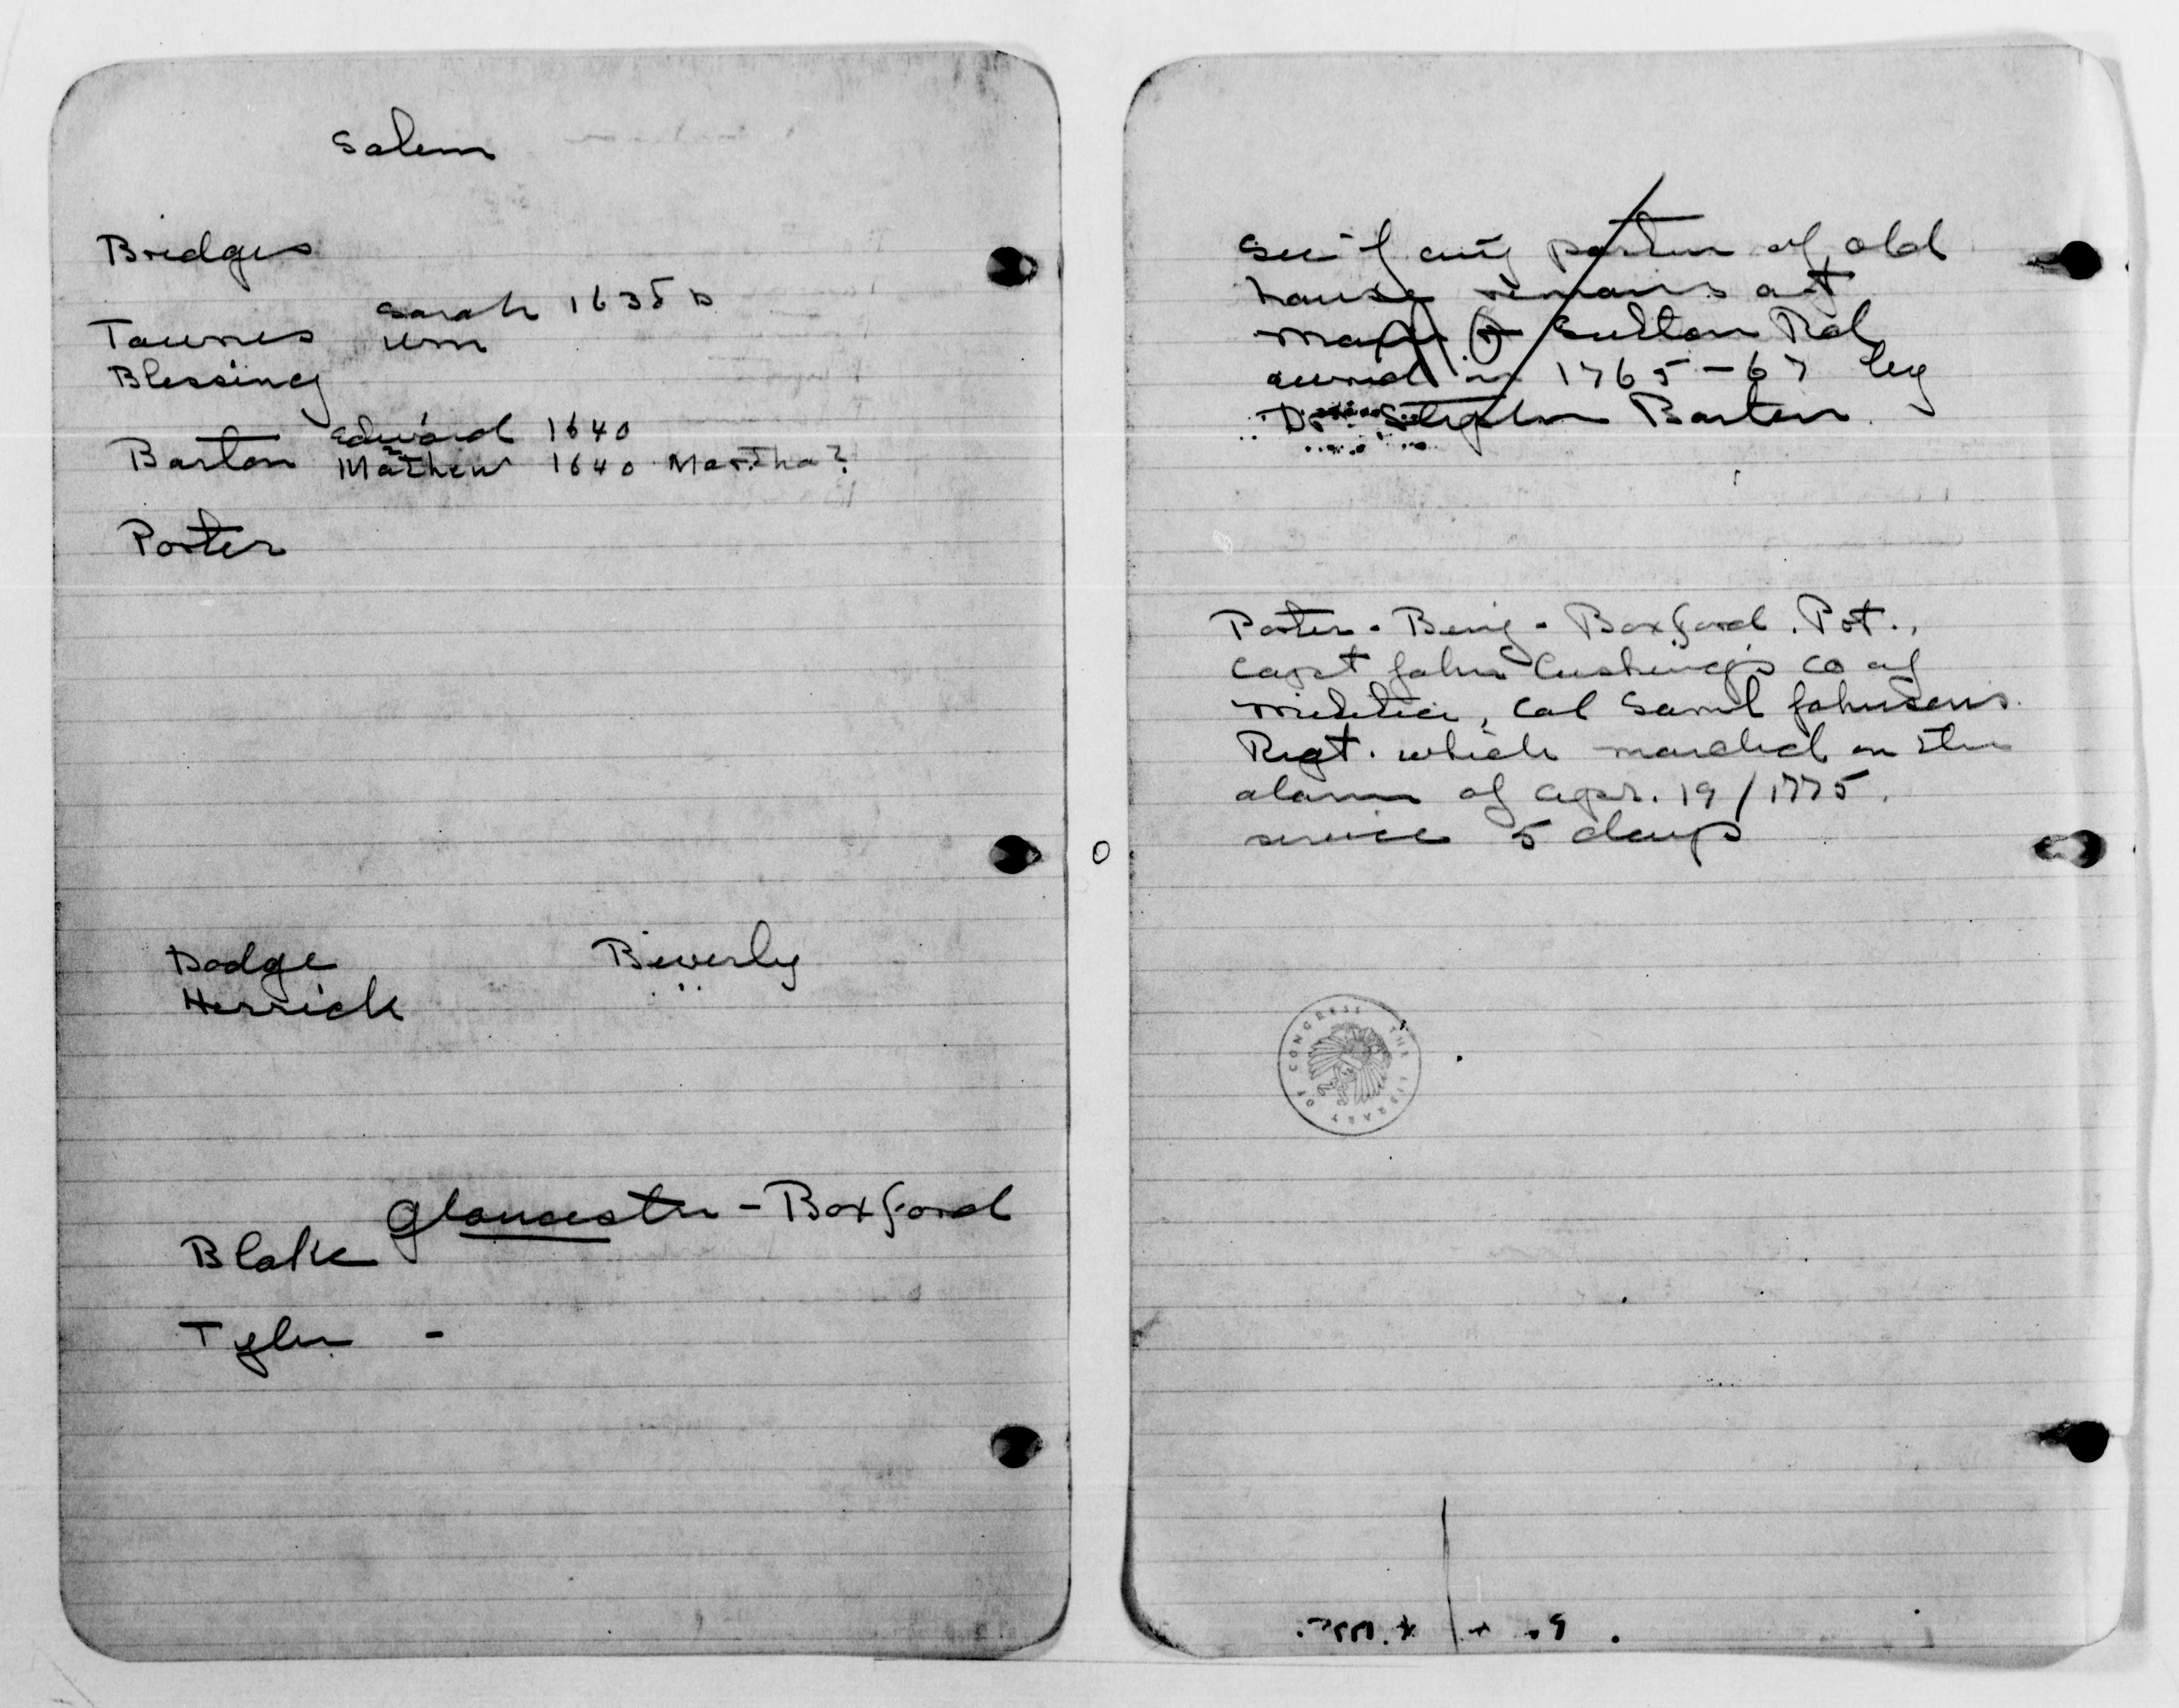 Salem
Bridges
Sarah 1635 D
Townes Wm
Blessing
Edward 1640
Barton Mathew 1640 Martha?
Porter
Dodge Beverly
Herrick
Gloucester - Boxford
Blake
Tyler -
See if any portion of old
house remains at
Sutton Rd
owned in 1765-67 by
Dr. Stephen Barton
Porter - Benj - Boxford. Pvt.,
Capt John Cushing's co of
militia, Col Saml Johnsons
Regt. which marched on the
alarm of Apr. 19/1775.
service 5 days
THE LIBRARY OF CONGRESS